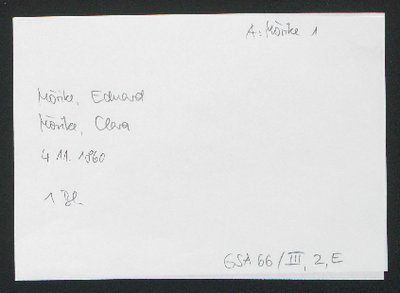 A: Mörike 1
Mörike, Eduard
Mörike, Clara
4. 11. 1860
1 Bl.
GSA 66/III, 2, E